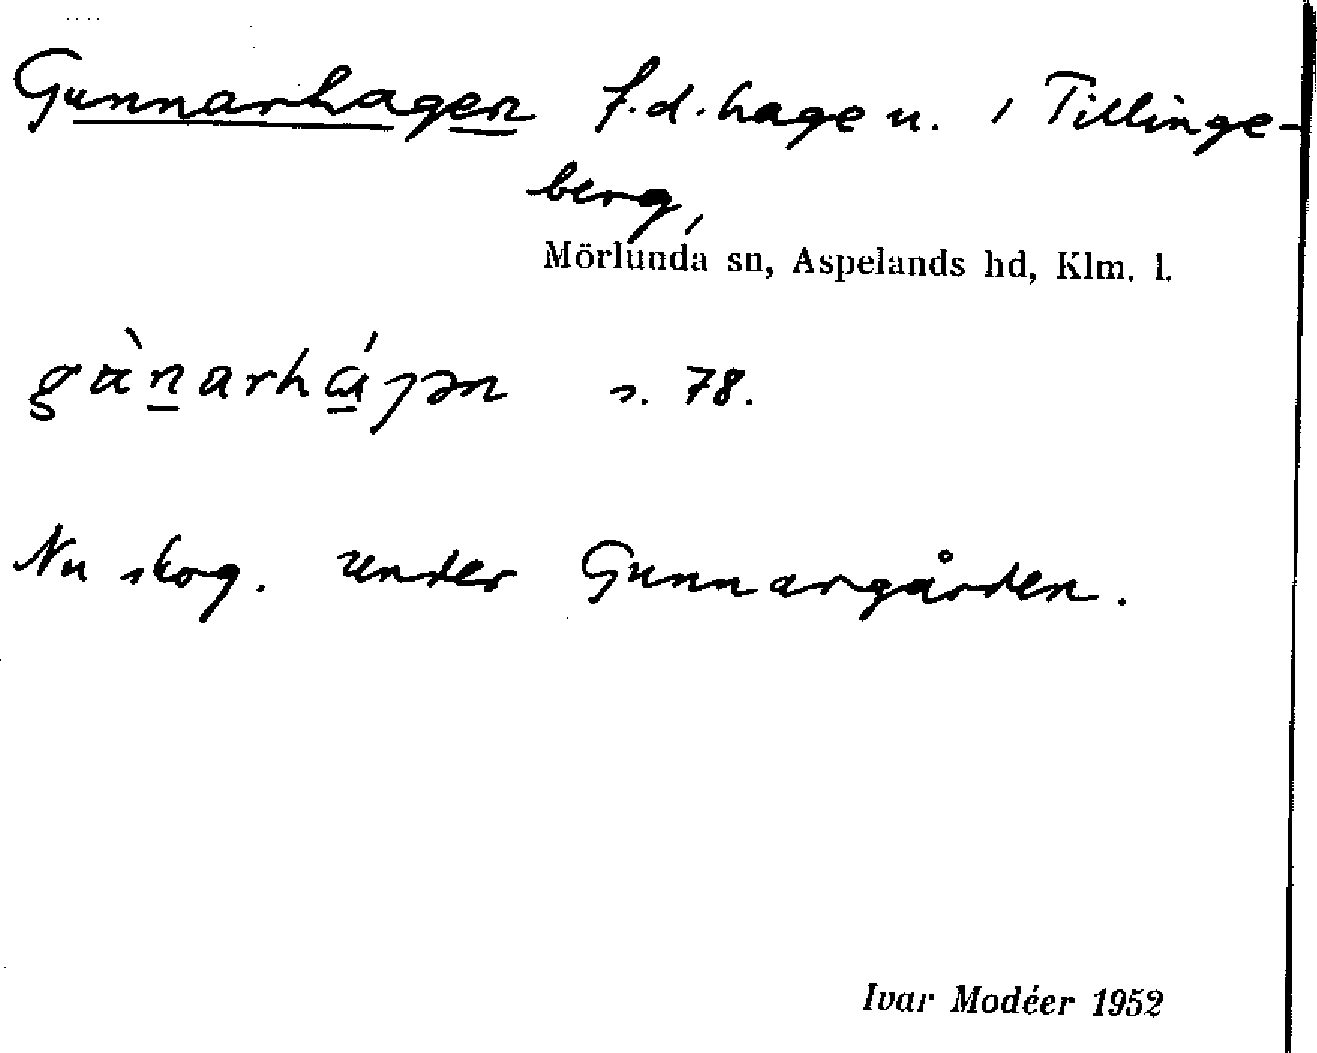 Gunnarhagen f.d. hage u. i Tillinge-
berg,
Mörlunda sn, Aspelands hd, Klm. l.
s. 78.
Nu skog. under Gunnargården.
Ivar Modéer 1952